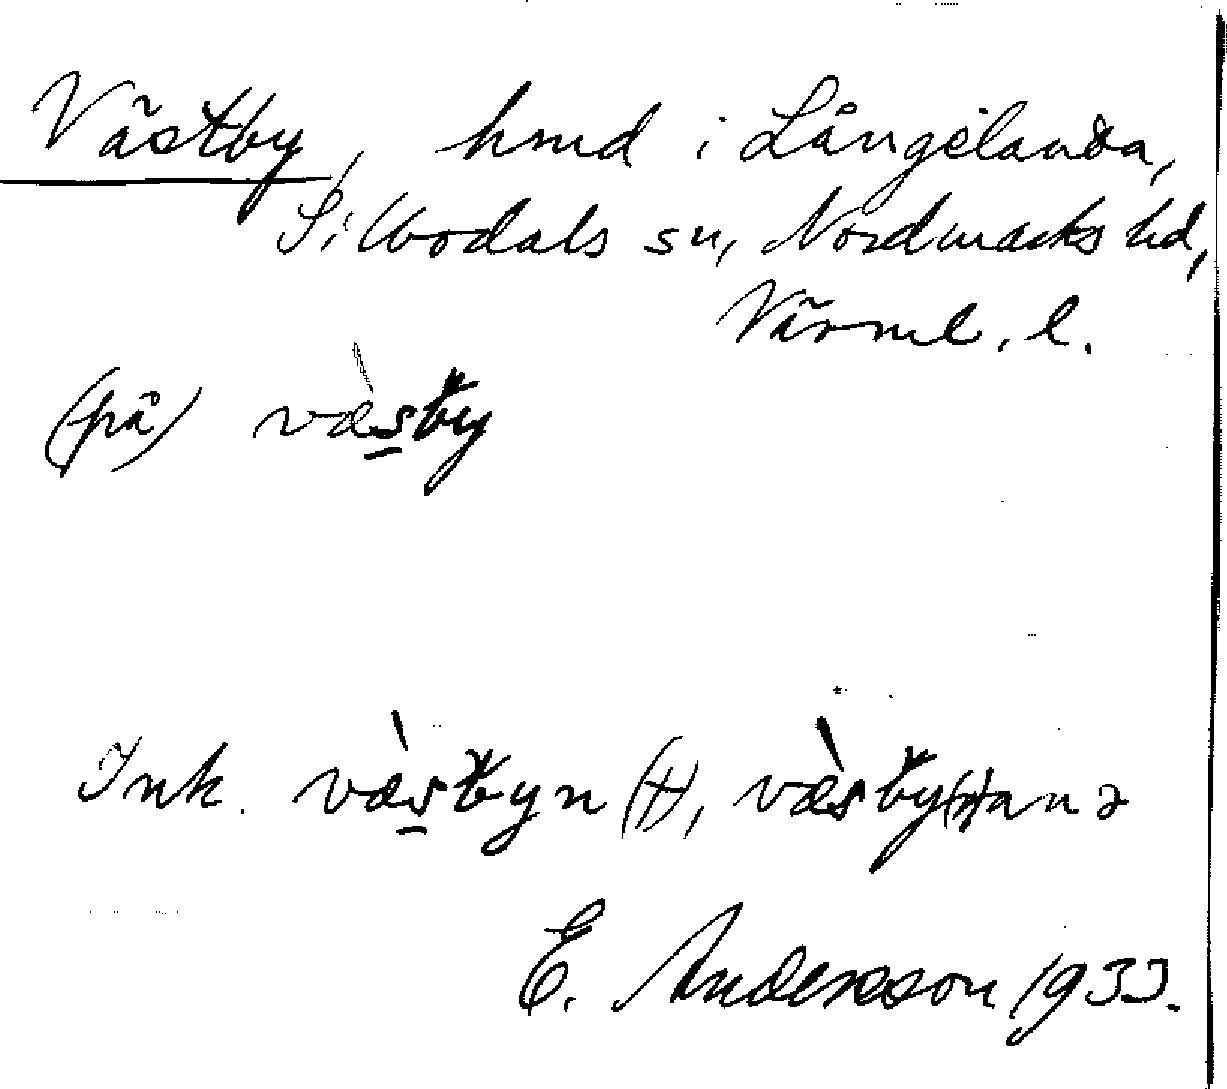 Västby, hmd i Långelanda,
Silbodals sn, Nordmarks hd,
Värml. l.
(på) væ̀s̠by
Ink. væ̀s̠byn (t), væ̀sby(n)anə
E. Andersson 1933.